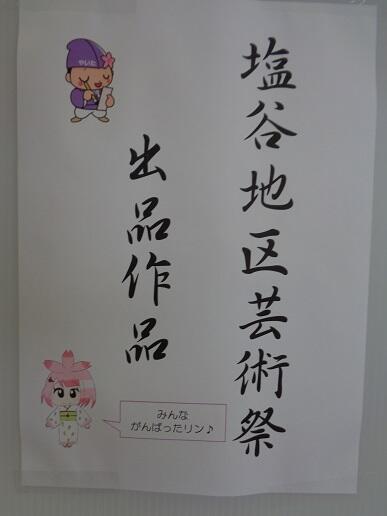 塩谷地区芸術祭
出品作品
やいた
みんな
がんばったリン♪